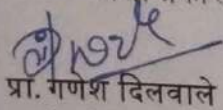 प्रा. गणेश दिलवाले